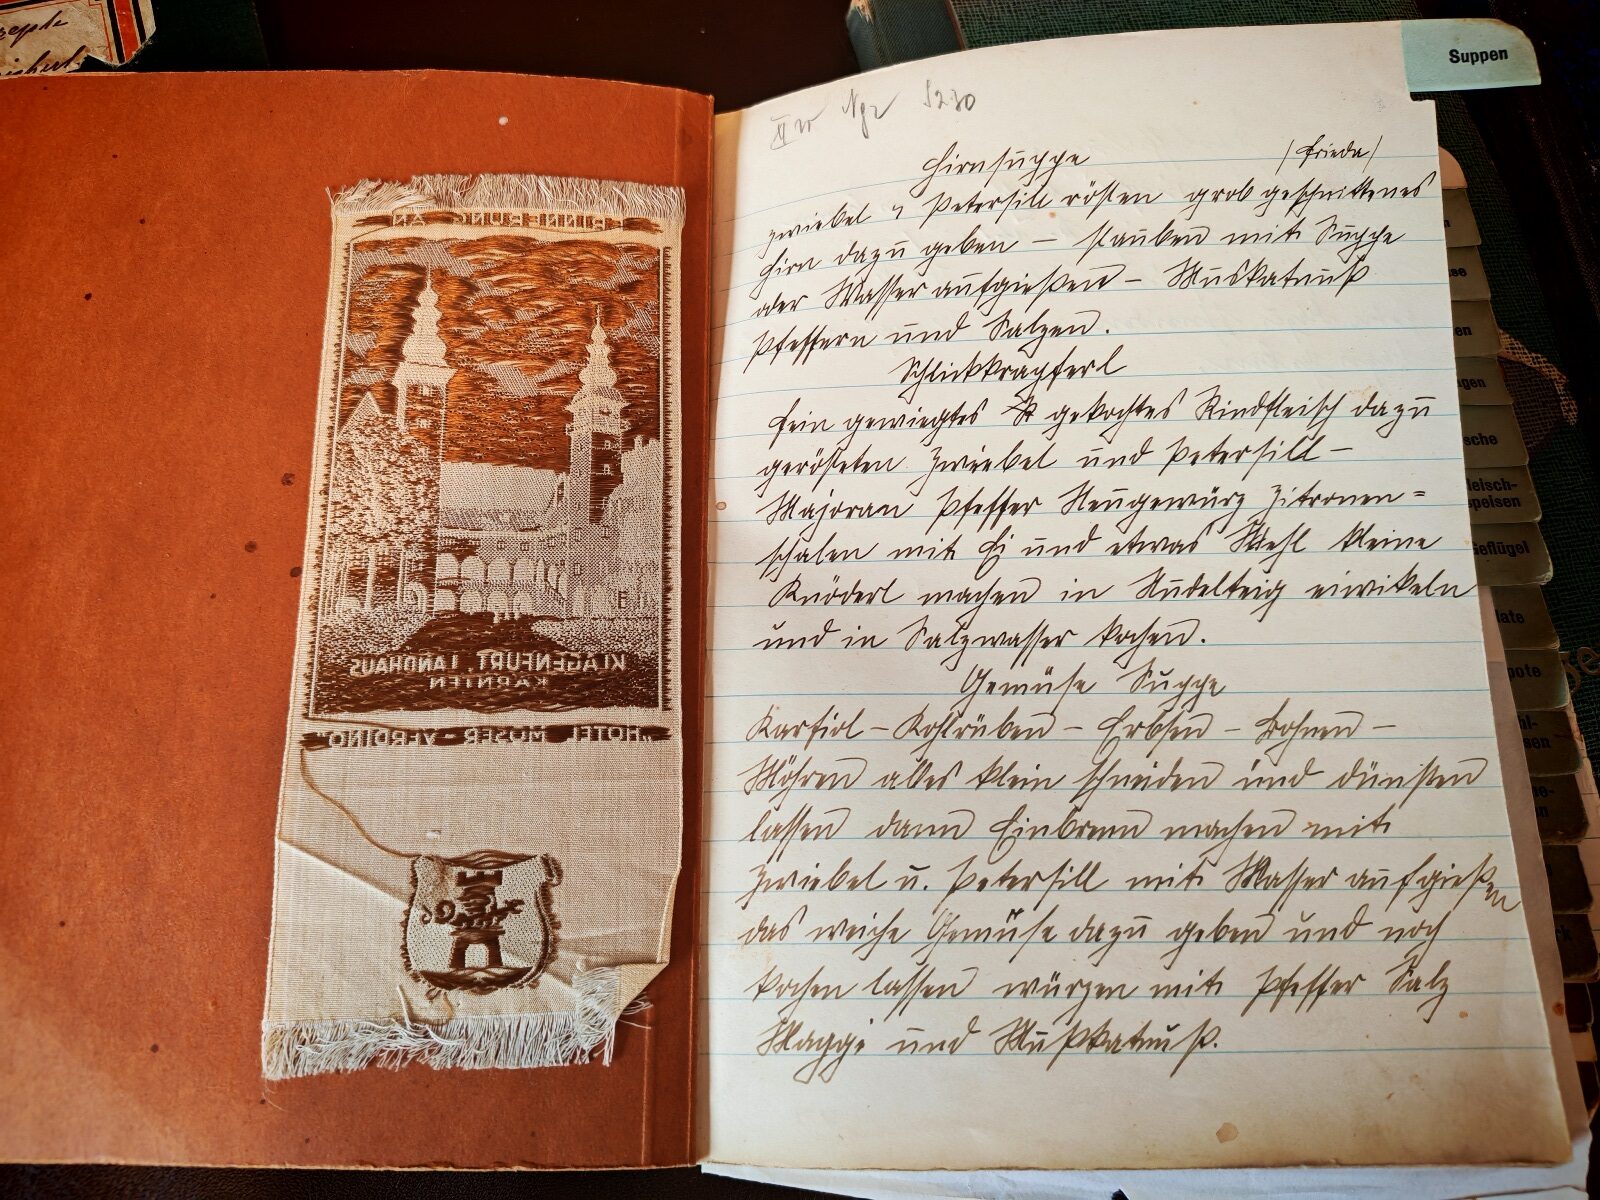 Suppen
S230
Hirnsuppe /Frieda/
Zwiebel u Petersill rösten grob geschnittenes
Hirn dazu geben – stauben mit Suppe
oder Wasser aufgießen – Muskatnuß
pfeffern und Salzen.
Schlickkrapferl
fein gewiegtes gekochtes Rindfleisch dazu
gerösteten Zwiebel und Petersill –
Majoran Pfeffer Neugewürz Zitronen=
schalen mit Ei und etwas Mehl kleine
Knöderl machen in Nudelteig einwikeln
und in Salzwasser kochen.
Gemüse Suppe
Karfiol – Kohlrüben – Erbsen – Bohnen –
Möhren alles klein schneiden und dünsten
lassen dann Einbrenn machen mit
Zwiebel u. Petersill mit Wasser aufgießen
das weiche Gemüse dazu geben und noch
kochen lassen würzen mit Pfeffer Salz
Maggi und Mußkatnuß.
ERINNERUNG AN
KLAGENFURT, LANDHAUS
KÄRNTEN
"HOTEL MOSER - VERDINO"
sche
leisch-
speisen
Geflügel